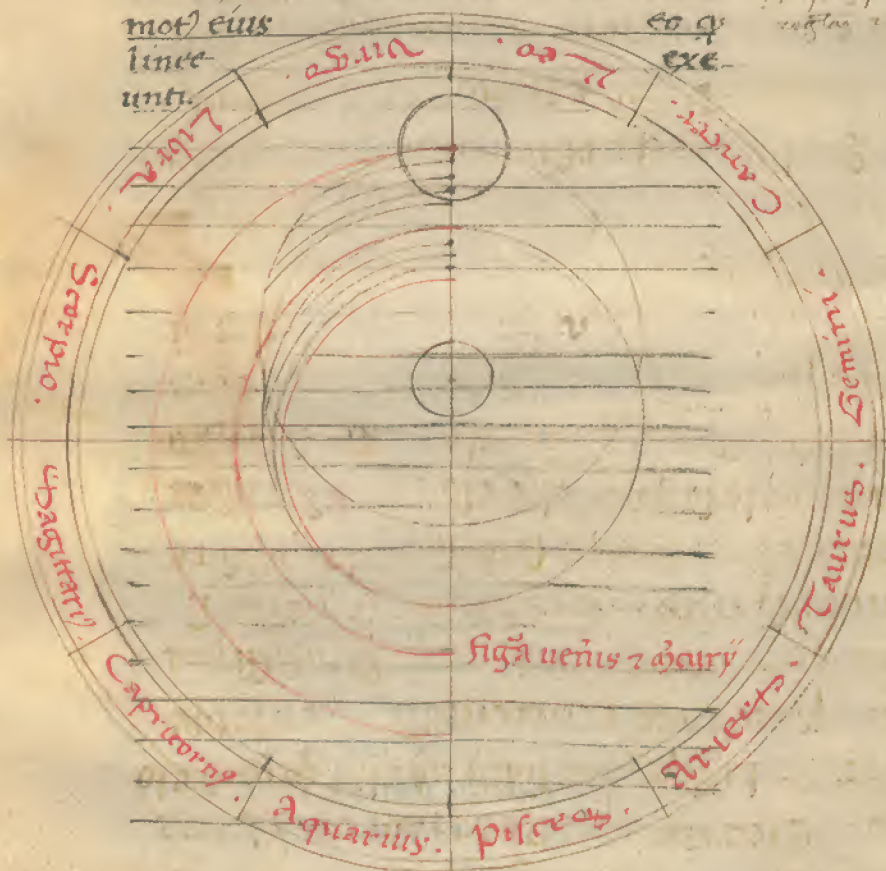 mot) eius
eo q
linee
exe-
unti.
Virgo.
Leo.
Cancer.
Gemini.
Taurus.
Aries.
Pisces.
Aquarius.
Capricorn9.
Sagittari9.
Scorpio.
Libra.
figa uen̄is ⁊ m̄curij